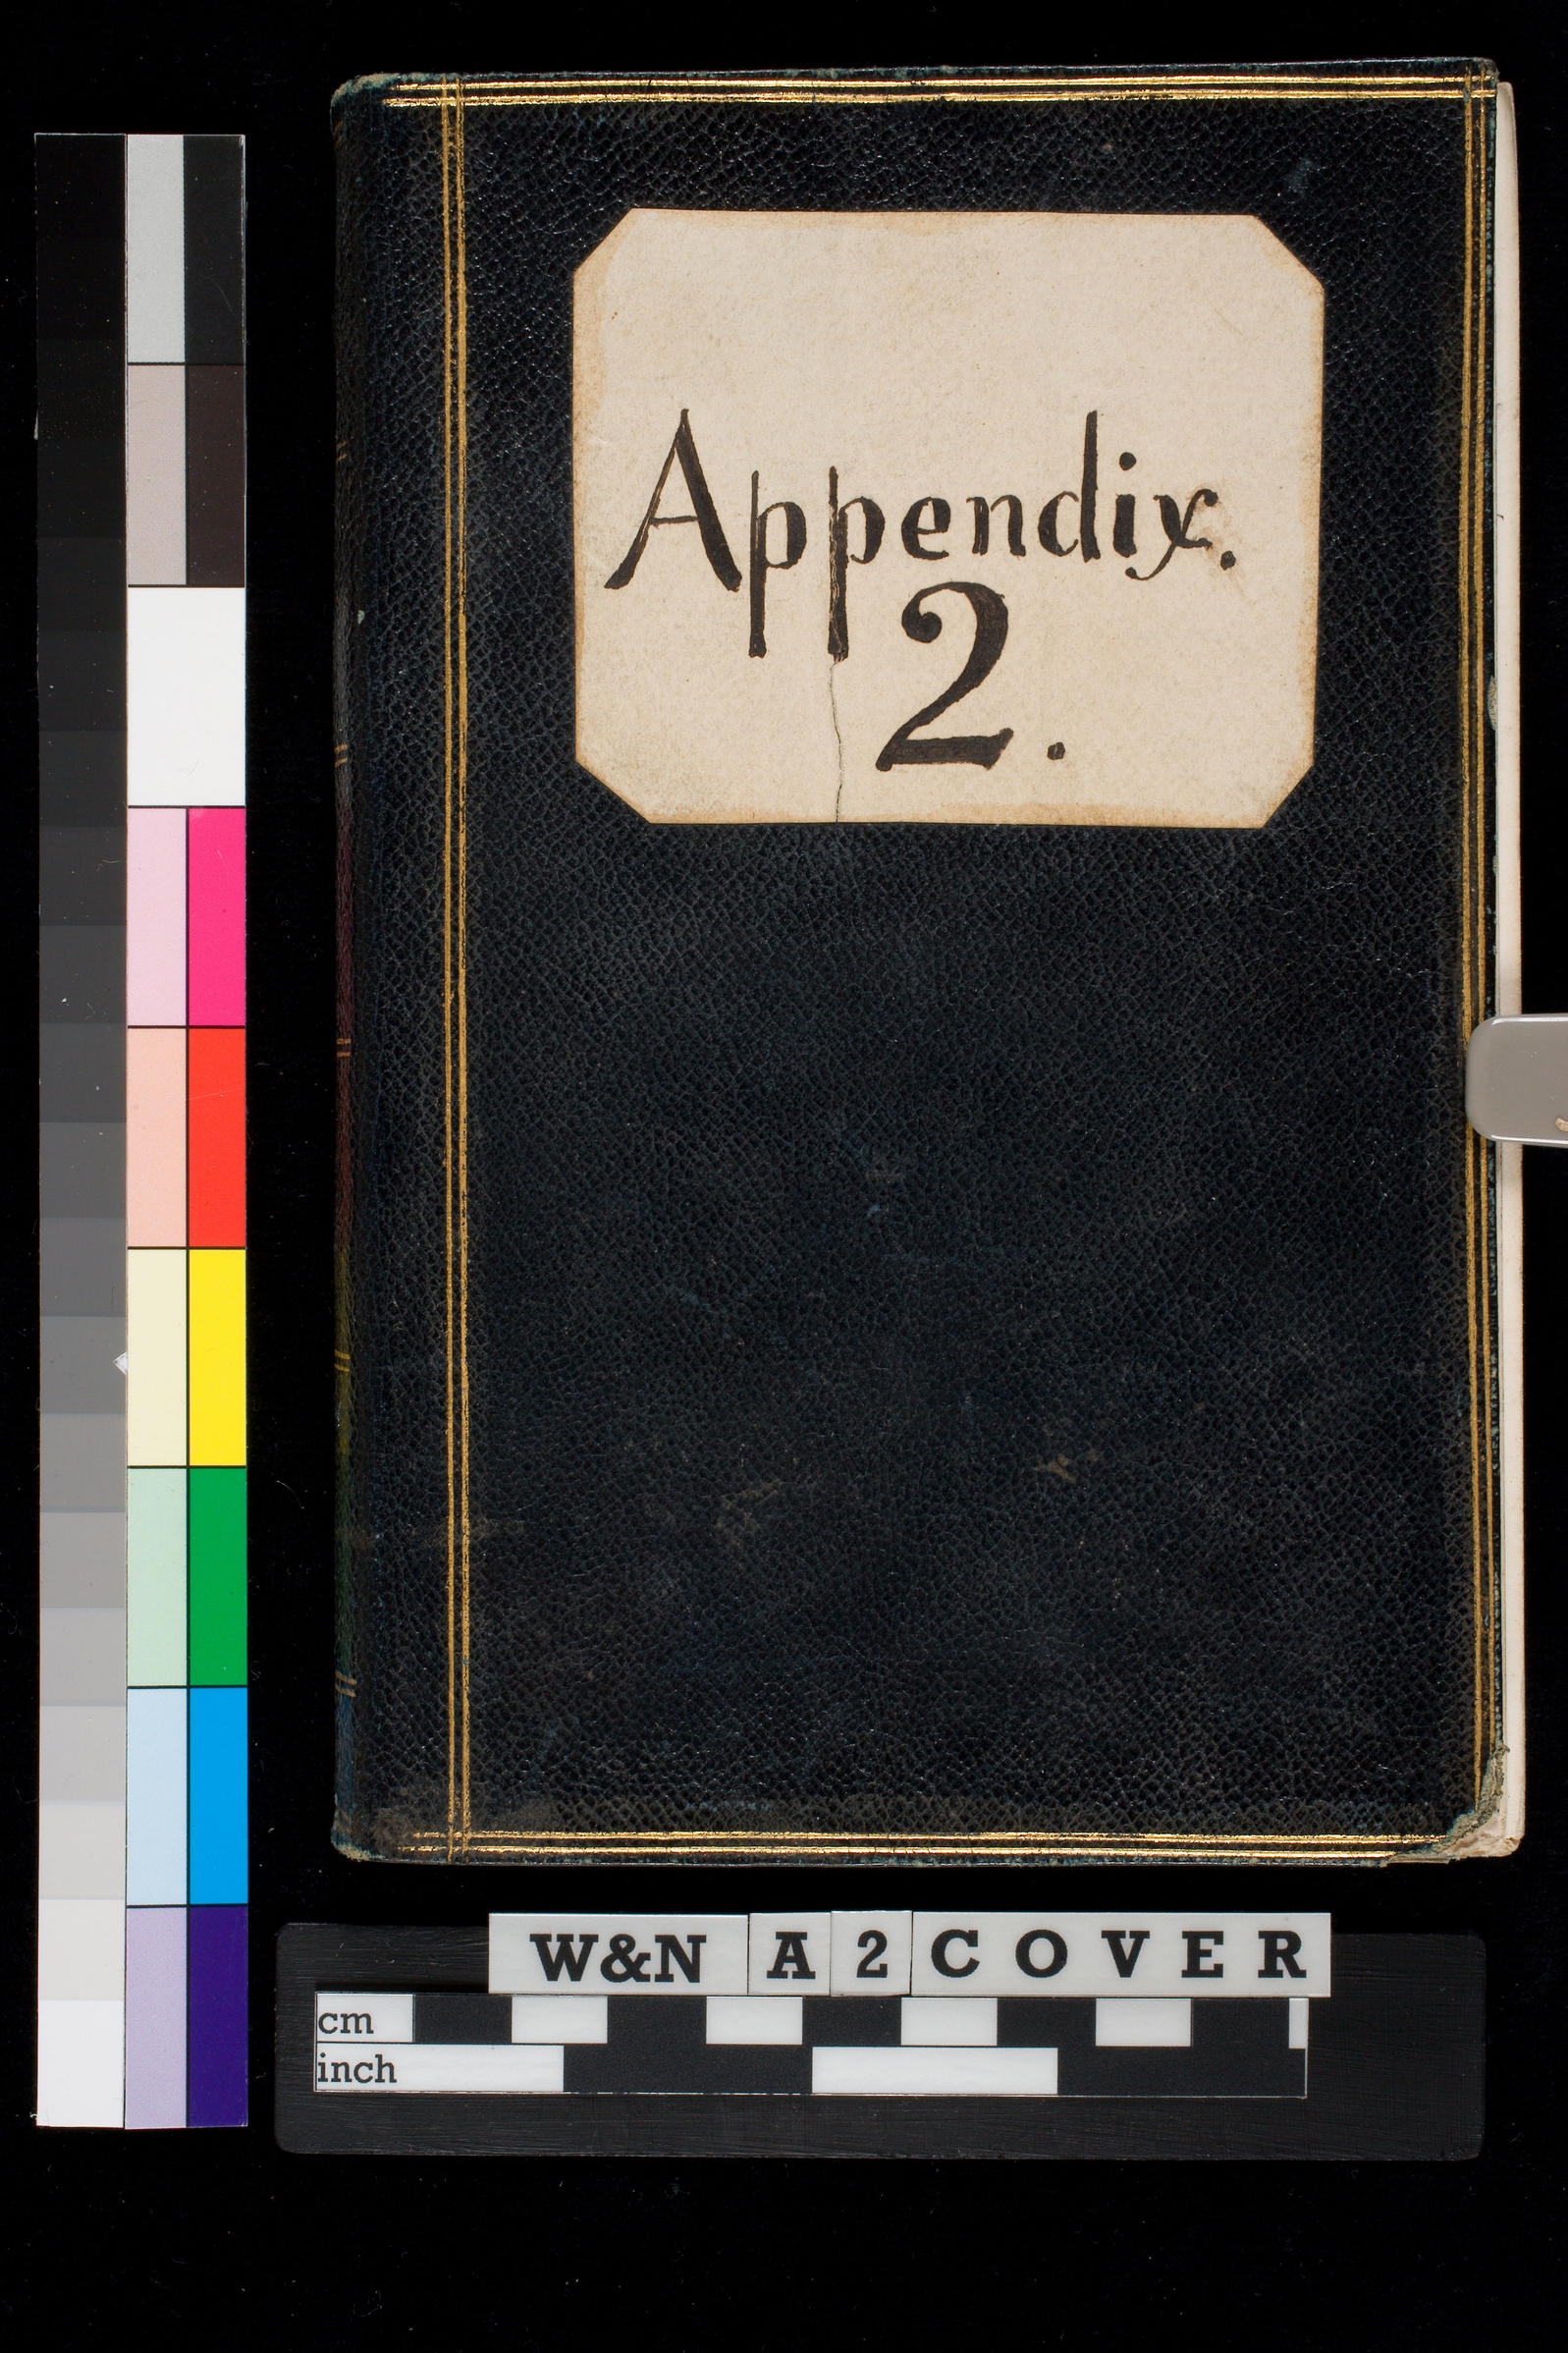 Appendix.
2.
W&N A 2 COVER
cm
inch